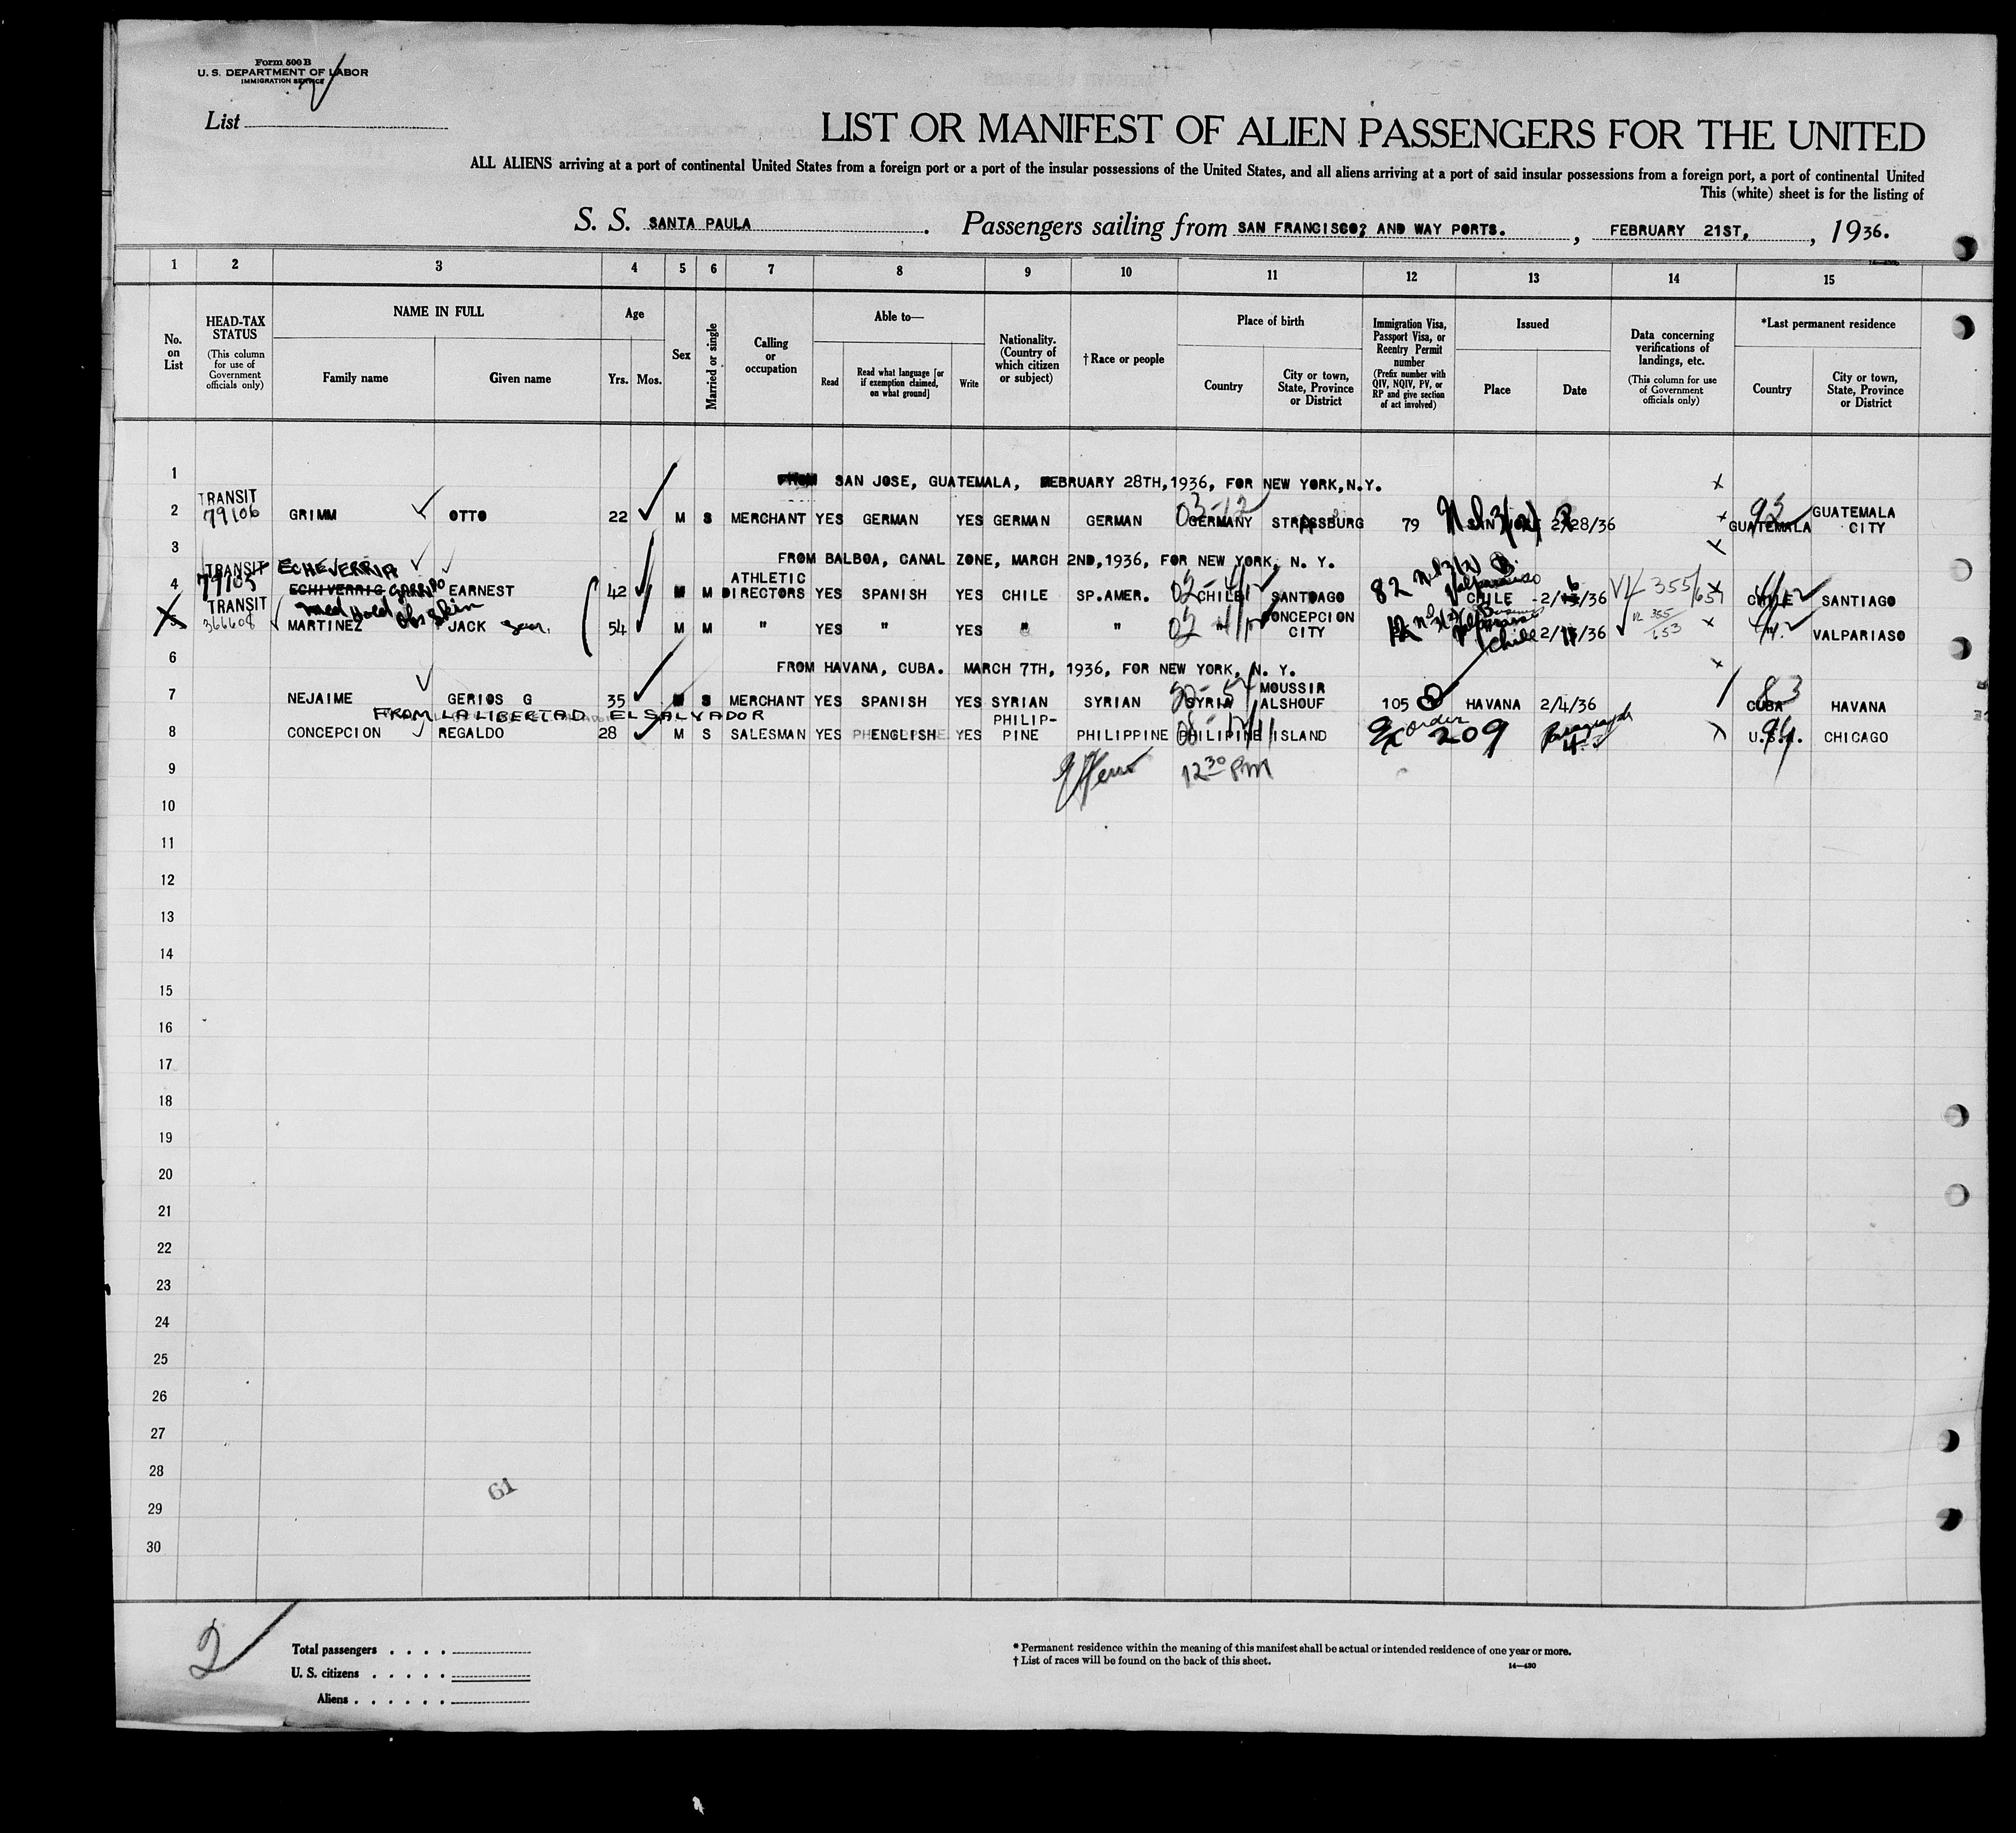 Form 500 B
U. S. DEPARTMENT OF LABOR
IMMIGRATION SERVICE
List
LIST OR MANIFEST OF ALIEN PASSENGERS FOR THE UNITED
ALL ALIENS arriving at a port of continental United States from a foreign port or a port of the insular possessions of the United States, and all aliens arriving at a port of said insular possessions from a foreign port, a port of continental United
This (white) sheet is for the listing of
S. S. SANTA PAULA . Passengers sailing from SAN FRANCISCO; AND WAY PORTS. , FEBRUARY 21ST, , 1936.
1 2 3 4 5 6 7 8 9 10 11 12 13 14 15
No. on List
HEAD-TAX STATUS (This column for use of Government officials only)
NAME IN FULL
Family name Given name
Age
Yrs. Mos.
Sex
Married or single
Calling or occupation
Able to—
Read Read what language [or if exemption claimed, on what ground] Write
Nationality. (Country of which citizen or subject)
†Race or people
Place of birth
Country City or town, State, Province or District
Immigration Visa, Passport Visa, or Reentry Permit number (Prefix number with QIV, NQIV, PV, or RP and give section of act involved)
Issued
Place Date
Data concerning verifications of landings, etc. (This column for use of Government officials only)
*Last permanent residence
Country City or town, State, Province or District
1 FROM SAN JOSE, GUATEMALA, FEBRUARY 28TH,1936, FOR NEW YORK,N.Y. x
TRANSIT 03-12 93 GUATEMALA
2 79106 GRIMM OTTO 22 M S MERCHANT YES GERMAN YES GERMAN GERMAN GERMANY STRASSBURG 79 2/28/36 GUATEMALA CITY
3 FROM BALBOA, CANAL ZONE, MARCH 2ND,1936, FOR NEW YORK, N. Y. x
TRANSIT ECHEVERRIA ATHLETIC Valparaiso
4 79105 ECHIVERRIG GARRIDO EARNEST 42 M M DIRECTORS YES SPANISH YES CHILE SP.AMER. CHILE SANTOAGO 82 CHILE 2/ /36 355/651 x CHILE SANTIAGO
TRANSIT Med Hold Obs Skin CONCEPCION 355
5 366608 MARTINEZ JACK 54 M M " YES " YES " " " CITY Chile 2/ /36 653 x VALPARIASO
6 FROM HAVANA, CUBA. MARCH 7TH, 1936, FOR NEW YORK, N. Y. x
MOUSSIR 83
7 NEJAIME GERIOS G 35 M S MERCHANT YES SPANISH YES SYRIAN SYRIAN SYRIA ALSHOUF 105 HAVANA 2/4/36 CUBA HAVANA
FROM LA LIBERTAD EL SALVADOR PHILIP-
8 CONCEPCION REGALDO 28 M S SALESMAN YES ENGLISH YES PINE PHILIPPINE PHILIPINE ISLAND order 209 x U.S.A. CHICAGO
9 12 30 PM
10
11
12
13
14
15
16
17
18
19
20
21
22
23
24
25
26
27
28
61
29
30
2
Total passengers . . . .
U. S. citizens . . . . .
Aliens . . . . . .
* Permanent residence within the meaning of this manifest shall be actual or intended residence of one year or more.
† List of races will be found on the back of this sheet.
14—430